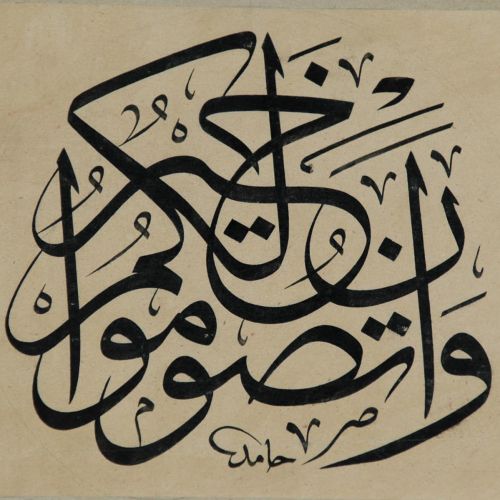 وَاَنْ تَصُومُوا خَيْرٌ لَكُمْ
حامد